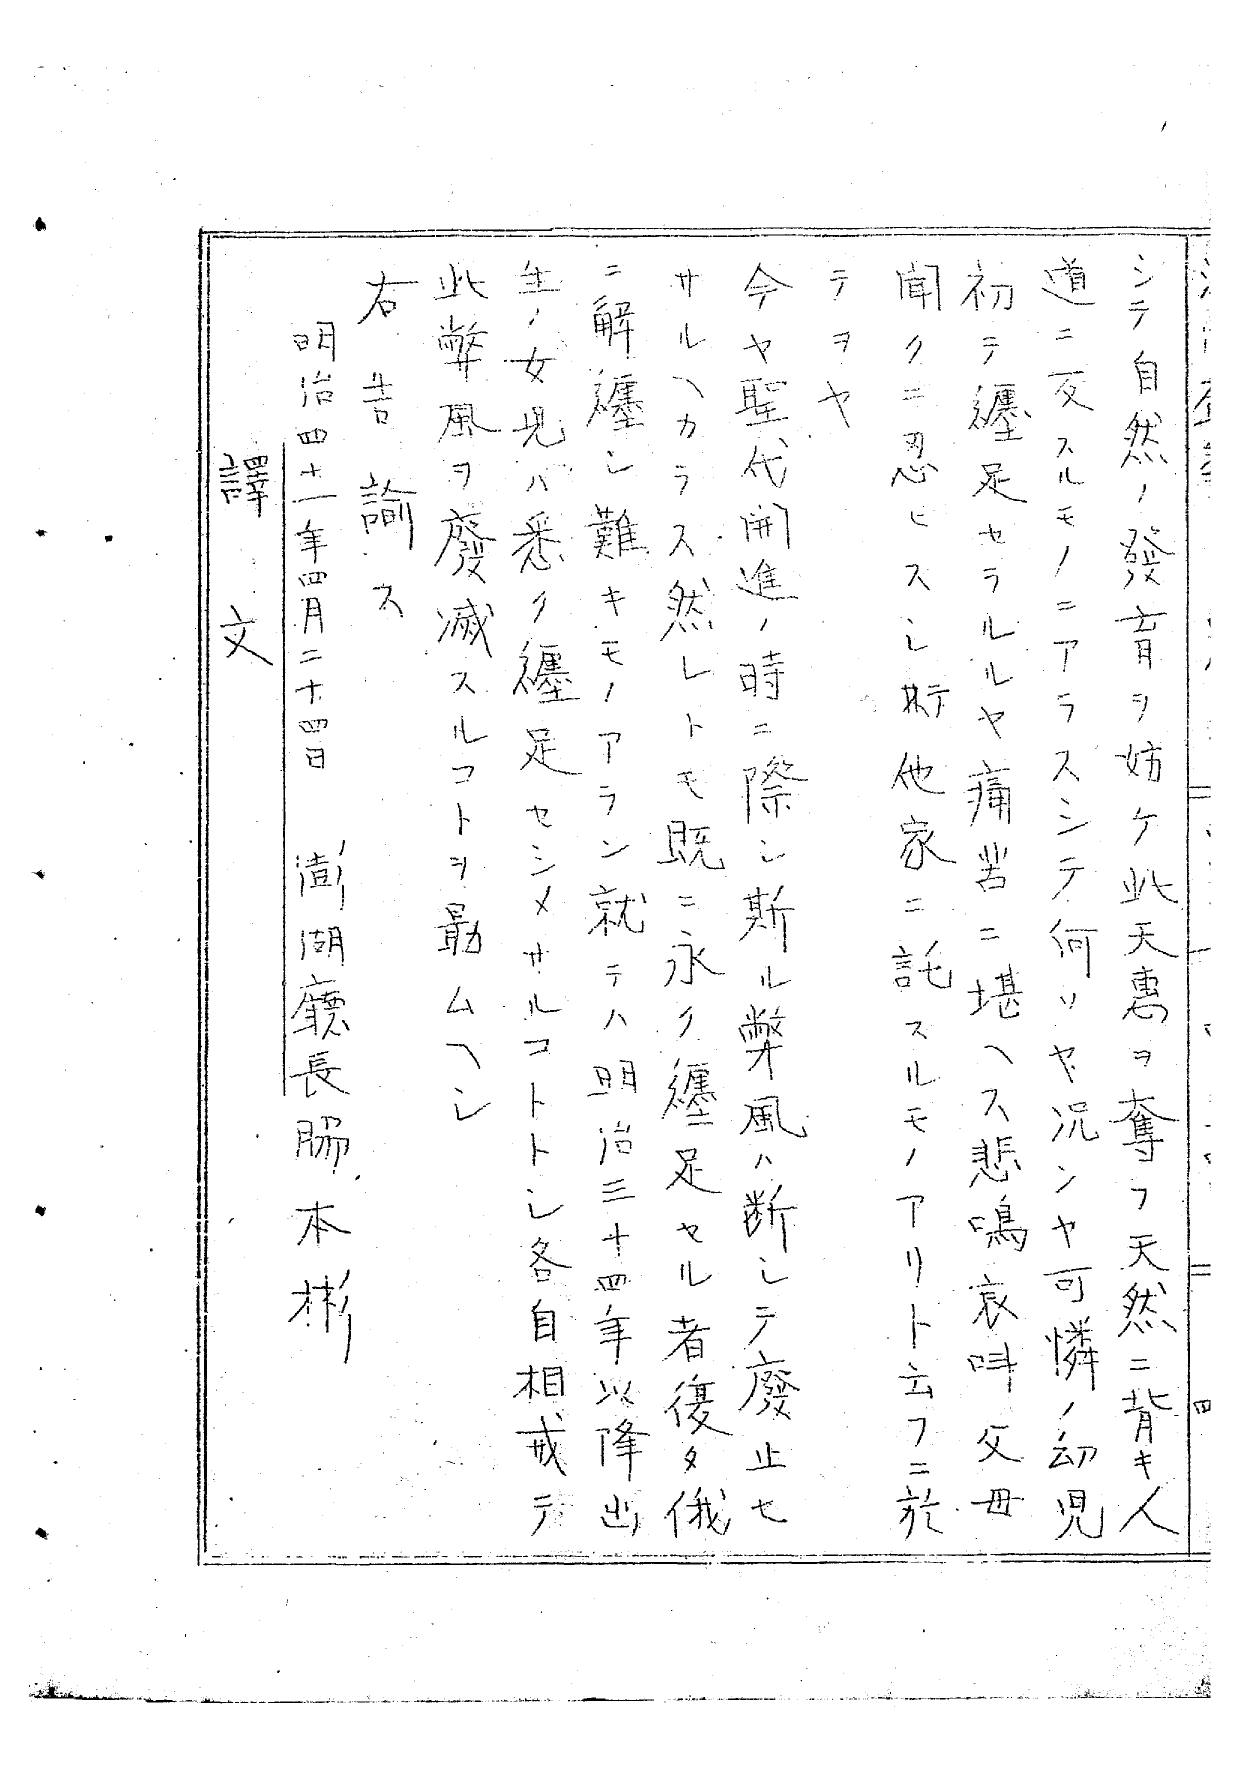 シテ自然ノ發育ヲ妨ケ此天惠ヲ奪フ天然ニ背キ人
道ニ反スルモノニアラスシテ何ソヤ況ンヤ可憐ノ幼児
初テ纏足セラルルヤ痛苦ニ堪ヘス悲鳴哀呌父母
聞クニ忍ヒスシ他家ニ託スルモノアリト云フニ於
テヲヤ
今ヤ聖代開進ノ時ニ際シ斯ル弊風ハ断シテ廢止セ
サルヘカラス然レトモ既ニ永ク纏足セル者復タ俄
ニ解纏シ難キモノアラン就テハ明治三十四年以降出
生ノ女児ハ悉ク纏足セシメサルコトトシ各自相戒テ
此弊風ヲ廢滅スルコトヲ勗ムヘシ
右告諭ス
明治四十一年四月二十四日 澎湖廳長脇本彬
譯文
四